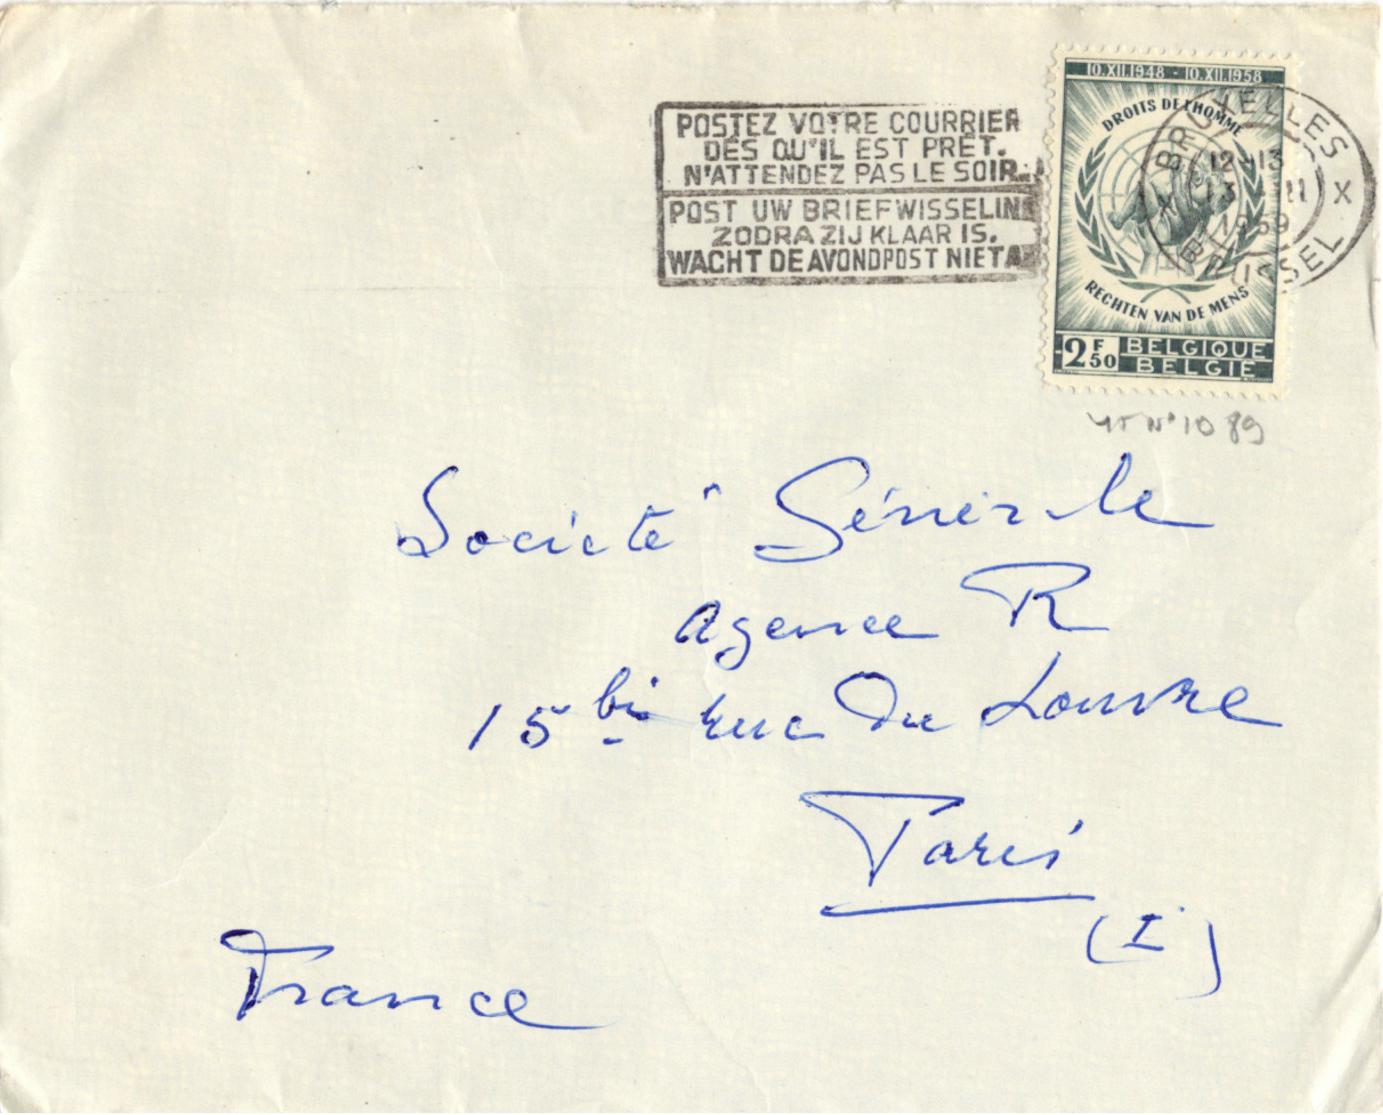 POSTEZ VOTRE COURRIER
DÈS QU'IL EST PRÊT.
N'ATTENDEZ PAS LE SOIR.
POST UW BRIEFWISSELIN
ZODRA ZIJ KLAAR IS.
WACHT DE AVONDPOST NIET A
10.XII.1948 - 10.XII.1958
DROITS DE L'HOMME
RECHTEN VAN DE MENS
2F50 BELGIQUE
BELGIE
X BRUXELLES X
12-13
1959
BRUSSEL
YT N° 1089
Société Générale
Agence R
15 bis rue du Louvre
Paris
(I)
France